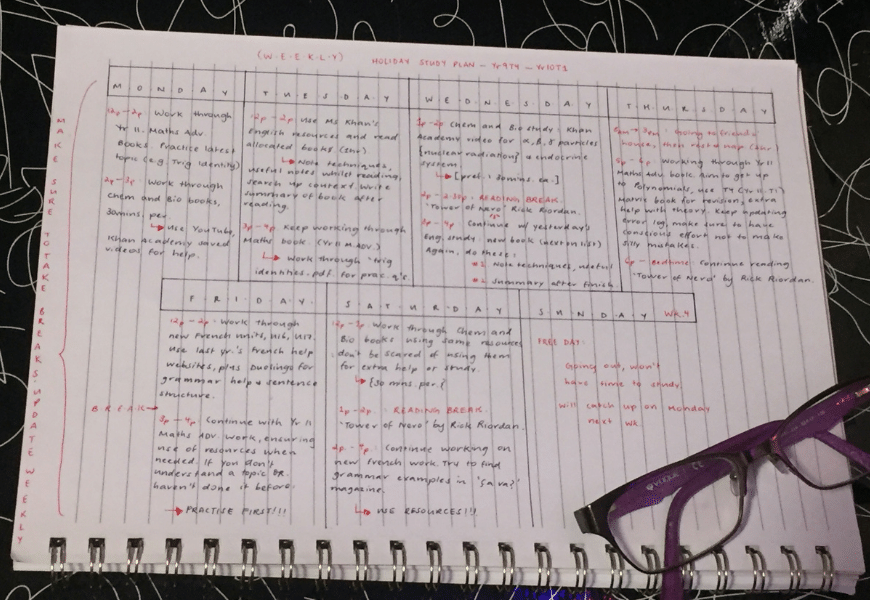 (W·E·E·K·L·Y) HOLIDAY STUDY PLAN - Yr9T4 - Yr10T1
MAKE SURE TO TAKE BREAKS. UPDATE WEEKLY
MONDAY
12p - 2p Work through
Yr 11 Maths Adv.
Books. Practice latest
topic (e.g Trig Identity)
2p - 3p Work through
Chem and Bio books,
30mins. per.
Use YouTube,
Khan Academy saved
videos for help.
TUESDAY
12p - 2p Use Ms Khan's
English resources and read
allocated books (1hr)
Note techniques,
useful notes whilst reading,
search up context. Write
summary of book after
reading.
3p - 4p Keep working through
Maths book. (Yr 11 M.ADV.)
Work through 'trig
identities.pdf' for prac. q's.
WEDNESDAY
1p - 2p Chem and Bio study. Khan
Academy video for α, β, γ particles
[nuclear radiation] & endocrine
system.
[pref. 30mins. ea.]
2p - 2:30p: READING BREAK.
'Tower of Nero' Rick Riordan.
3p - 4p Continue w/ yesterday's
Eng. study. new book (next on list)
Again, do these:
#1 Note techniques, useful
#2 Summary after finish
THURSDAY
Going to friend's
house, then rest & nap
Working through Yr 11
Maths Adv. book. Aim to get up
to Polynomials, use T4 (Yr 11. T1)
Matrix book for revision, extra
help with theory. Keep updating
error log, make sure to have
conscious effort not to make
silly mistakes.
6p - bedtime: Continue reading
'Tower of Nero' by Rick Riordan.
FRIDAY
12p - 2p: Work through
new French units,
Use last yr.'s French help
websites, plus Duolingo for
grammar help & sentence
structure.
BREAK
3p - 4p Continue with Yr 11
Maths ADV. work, ensuring
use of resources when
needed. If you don't
understand a topic or
haven't done it before.
PRACTISE FIRST!!!
SATURDAY
Work through Chem and
Bio books using same resources
don't be scared of using them
for extra help or study.
[30 mins. per.]
1p - 2p: READING BREAK.
'Tower of Nero' by Rick Riordan.
2p - 4p: Continue working on
new French work. Try to find
grammar examples in 'Ça va?'
magazine.
USE RESOURCES!!!
SUNDAY WK.4
FREE DAY:
Going out, won't
have time to study.
Will catch up on Monday
next wk.